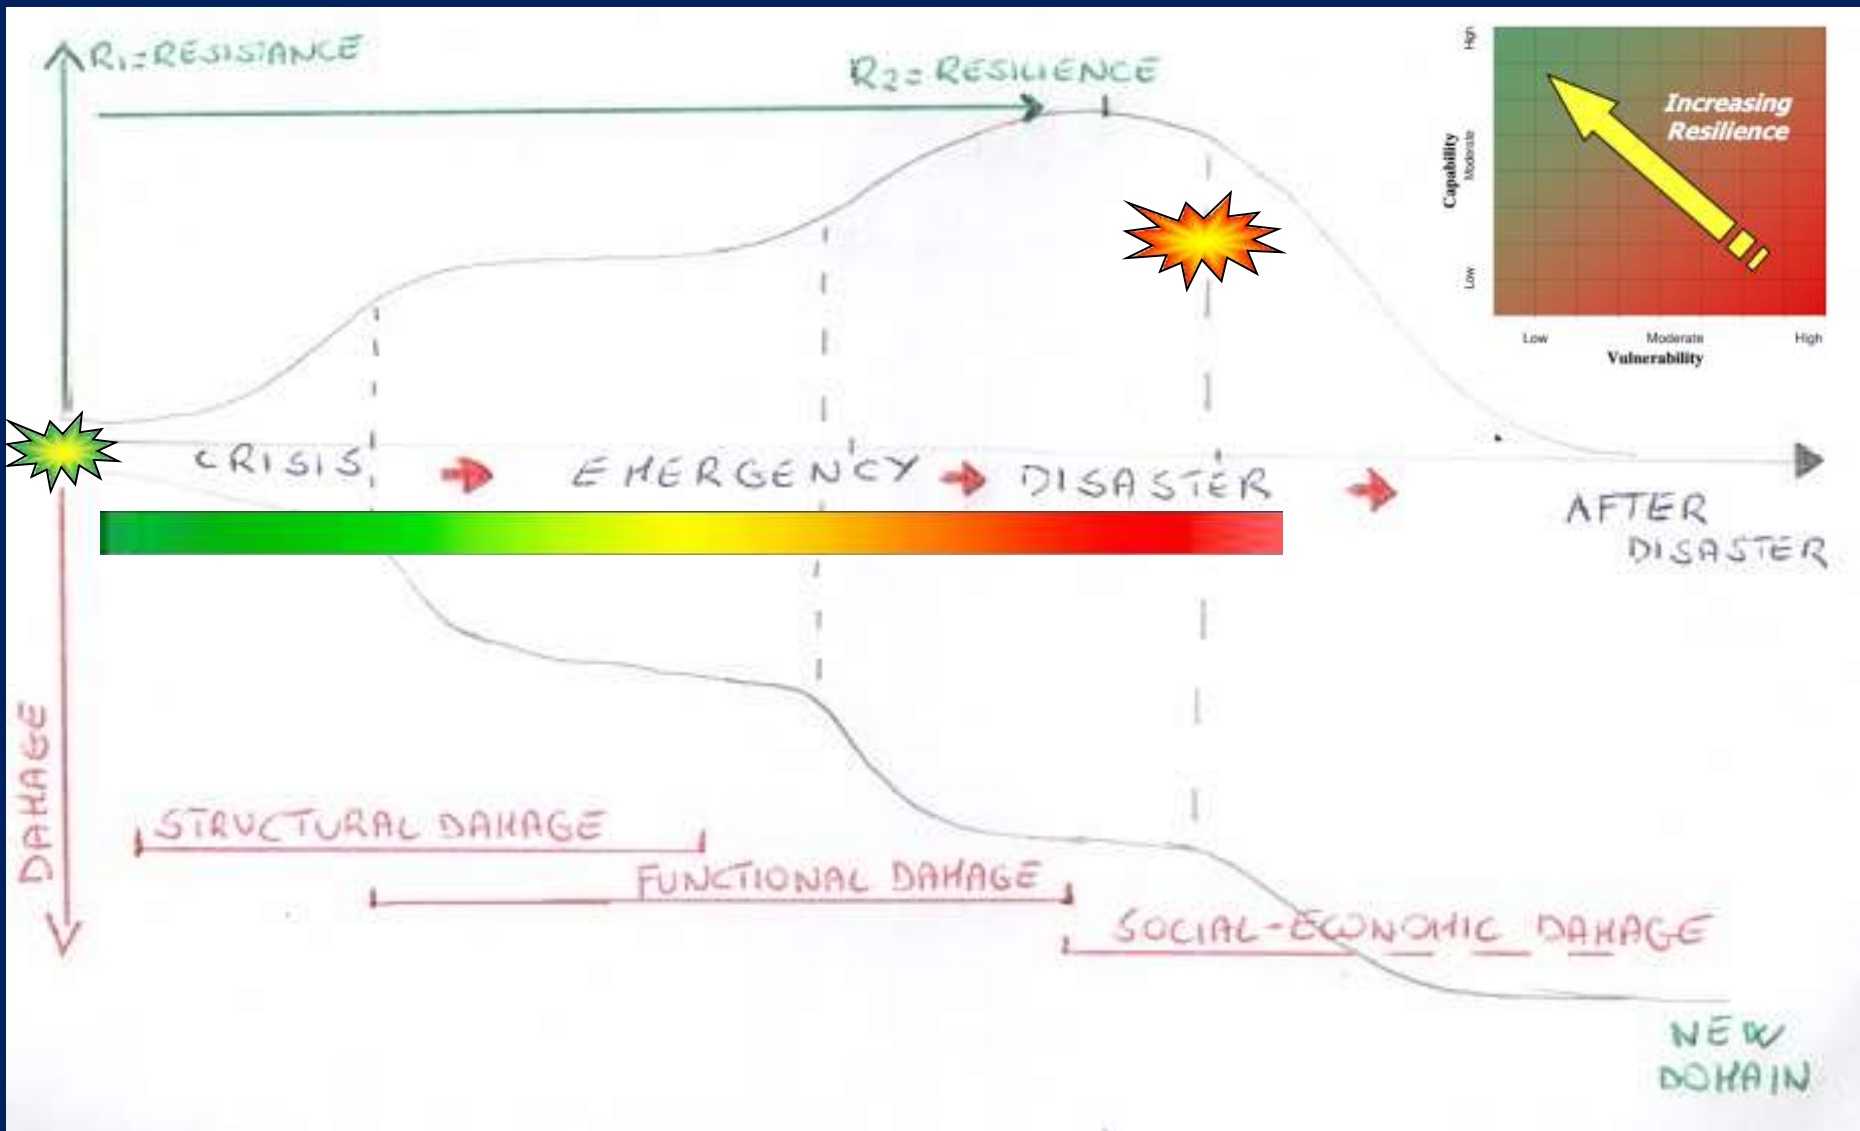 R1=RESISTANCE
R2=RESILIENCE
High
Moderate
Low
Capability
Increasing
Resilience
Low Moderate High
Vulnerability
CRISIS EMERGENCY DISASTER
AFTER
DISASTER
DAMAGE
STRUCTURAL DAMAGE
FUNCTIONAL DAMAGE
SOCIAL-ECONOMIC DAMAGE
NEW
DOMAIN